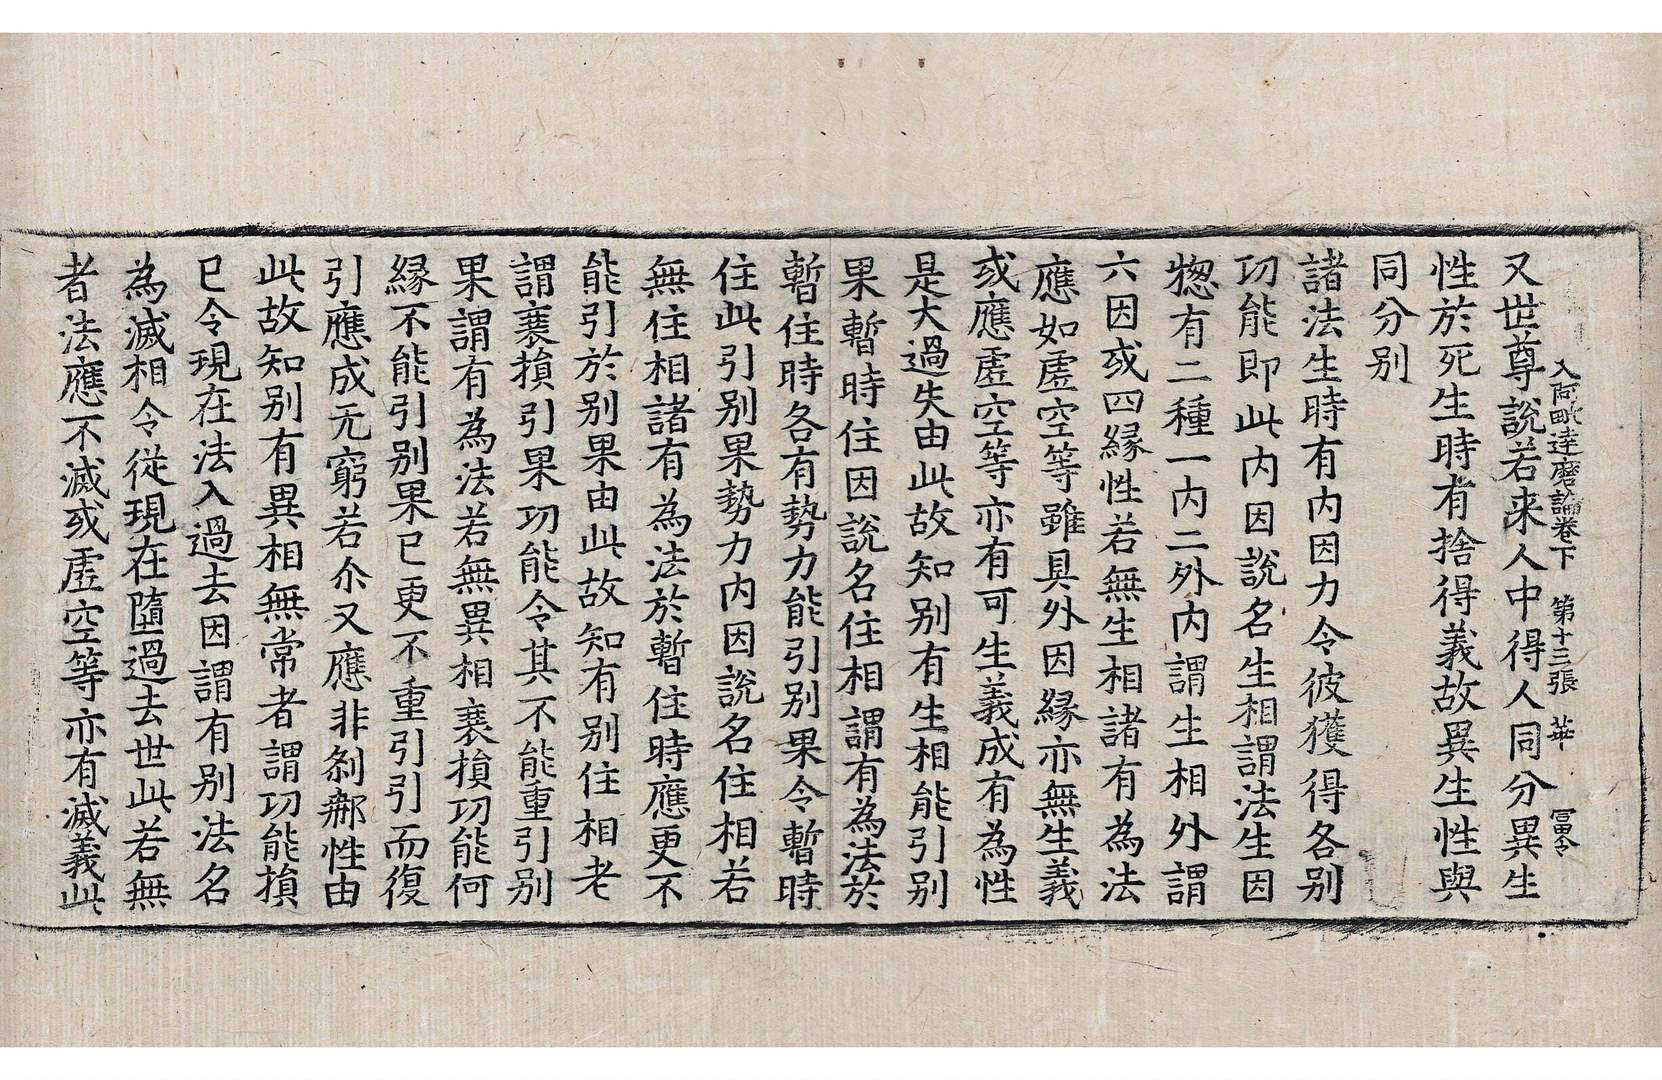 入阿毗達磨論卷下 第十三張 華 冨令
又世尊說若来人中得人同分異生
性於死生時有捨得義故異生性與
同分别
諸法生時有内因力令彼獲得各别
功能即此内因說名生相謂法生因
揔有二種一内二外内謂生相外謂
六因或四縁性若無生相諸有為法
應如虛空等雖具外因縁亦無生義
或應虛空等亦有可生義成有為性
是大過失由此故知别有生相能引别
果暫時住因說名住相謂有為法於
暫住時各有勢力能引别果令暫時
住此引别果勢力内因說名住相若
無住相諸有為法於暫住時應更不
能引於别果由此故知有别住相老
謂衰損引果功能令其不能重引别
果謂有為法若無異相衰損功能何
縁不能引别果已更不重引引而復
引應成无窮若尒又應非刹𨙻性由
此故知别有異相無常者謂功能損
已令現在法入過去因謂有别法名
為滅相令從現在隨過去世此若無
者法應不滅或虛空等亦有滅義此